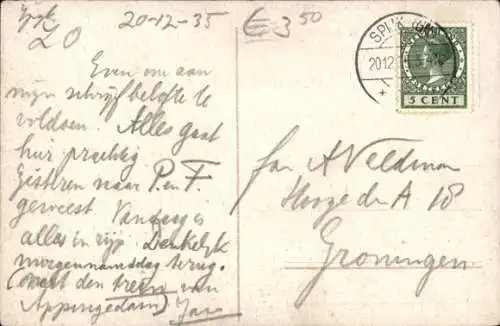 20-12-35
€ 3 50
Even om aan
mijn schrijfbelofte te
voldoen. Alles gaat
hier prachtig
Gisteren naar P. en F.
geweest Vandaag is
alles in rijp. Denkelijk
morgennamiddag terug.
(met den trein van
Appingedam)
SPIJK (GN)
2012
5 CENT
A Veldman
Hooge der A 18
Groningen